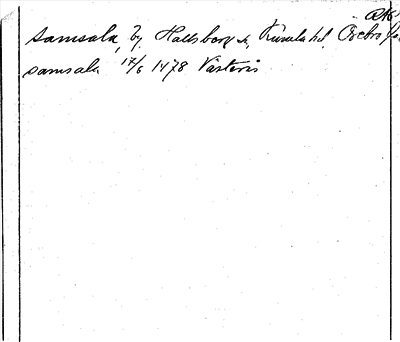 Samsala, by, Hallsberg s, Kumla hd, Örebro
samsala 17/6 1478 Västerås